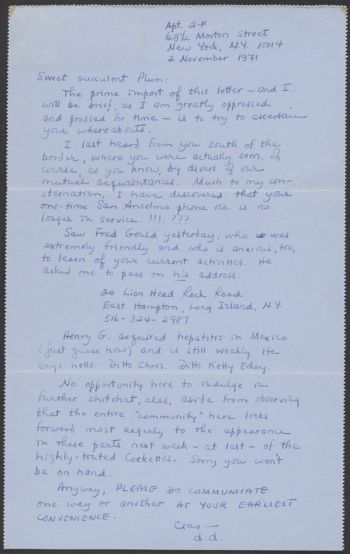 Apt. 2-F
68½ Morton Street
New York, N.Y. 10014
2 November 1971
Sweet succulent Plum:
The prime import of this letter — and I
will be brief, as I am greatly oppressed
and pressed for time — is to try to ascertain
your whereabouts.
I last heard from you south of the
border, where you were actually seen, of
course, as you know, by divers of our
mutual acquaintances. Much to my con-
sternation, I have discovered that your
one-time San Anselmo phone no. is no
longer in service. !!!. ???
Saw Fred Gould yesterday, who was
extremely friendly and who is anxious, too,
to learn of your current activities. He
asked me to pass on his address:
20 Lion Head Rock Road
East Hampton, Long Island, N.Y.
516-324-2987
Henry G. acquired hepatitis in Mexico
(just guess how) and is still weakly. He
says hello. Ditto Chris. Ditto Kelly Edey.
No opportunity here to indulge in
further chitchat, alas, aside from observing
that the entire "community" here looks
forward most eagerly to the appearance
in these parts next week — at last — of the
highly-touted Cockettes. Sorry you won't
be on hand.
Anyway, PLEASE DO COMMUNICATE
one way or another AT YOUR EARLIEST
CONVENIENCE.
Ciao —
d.d.